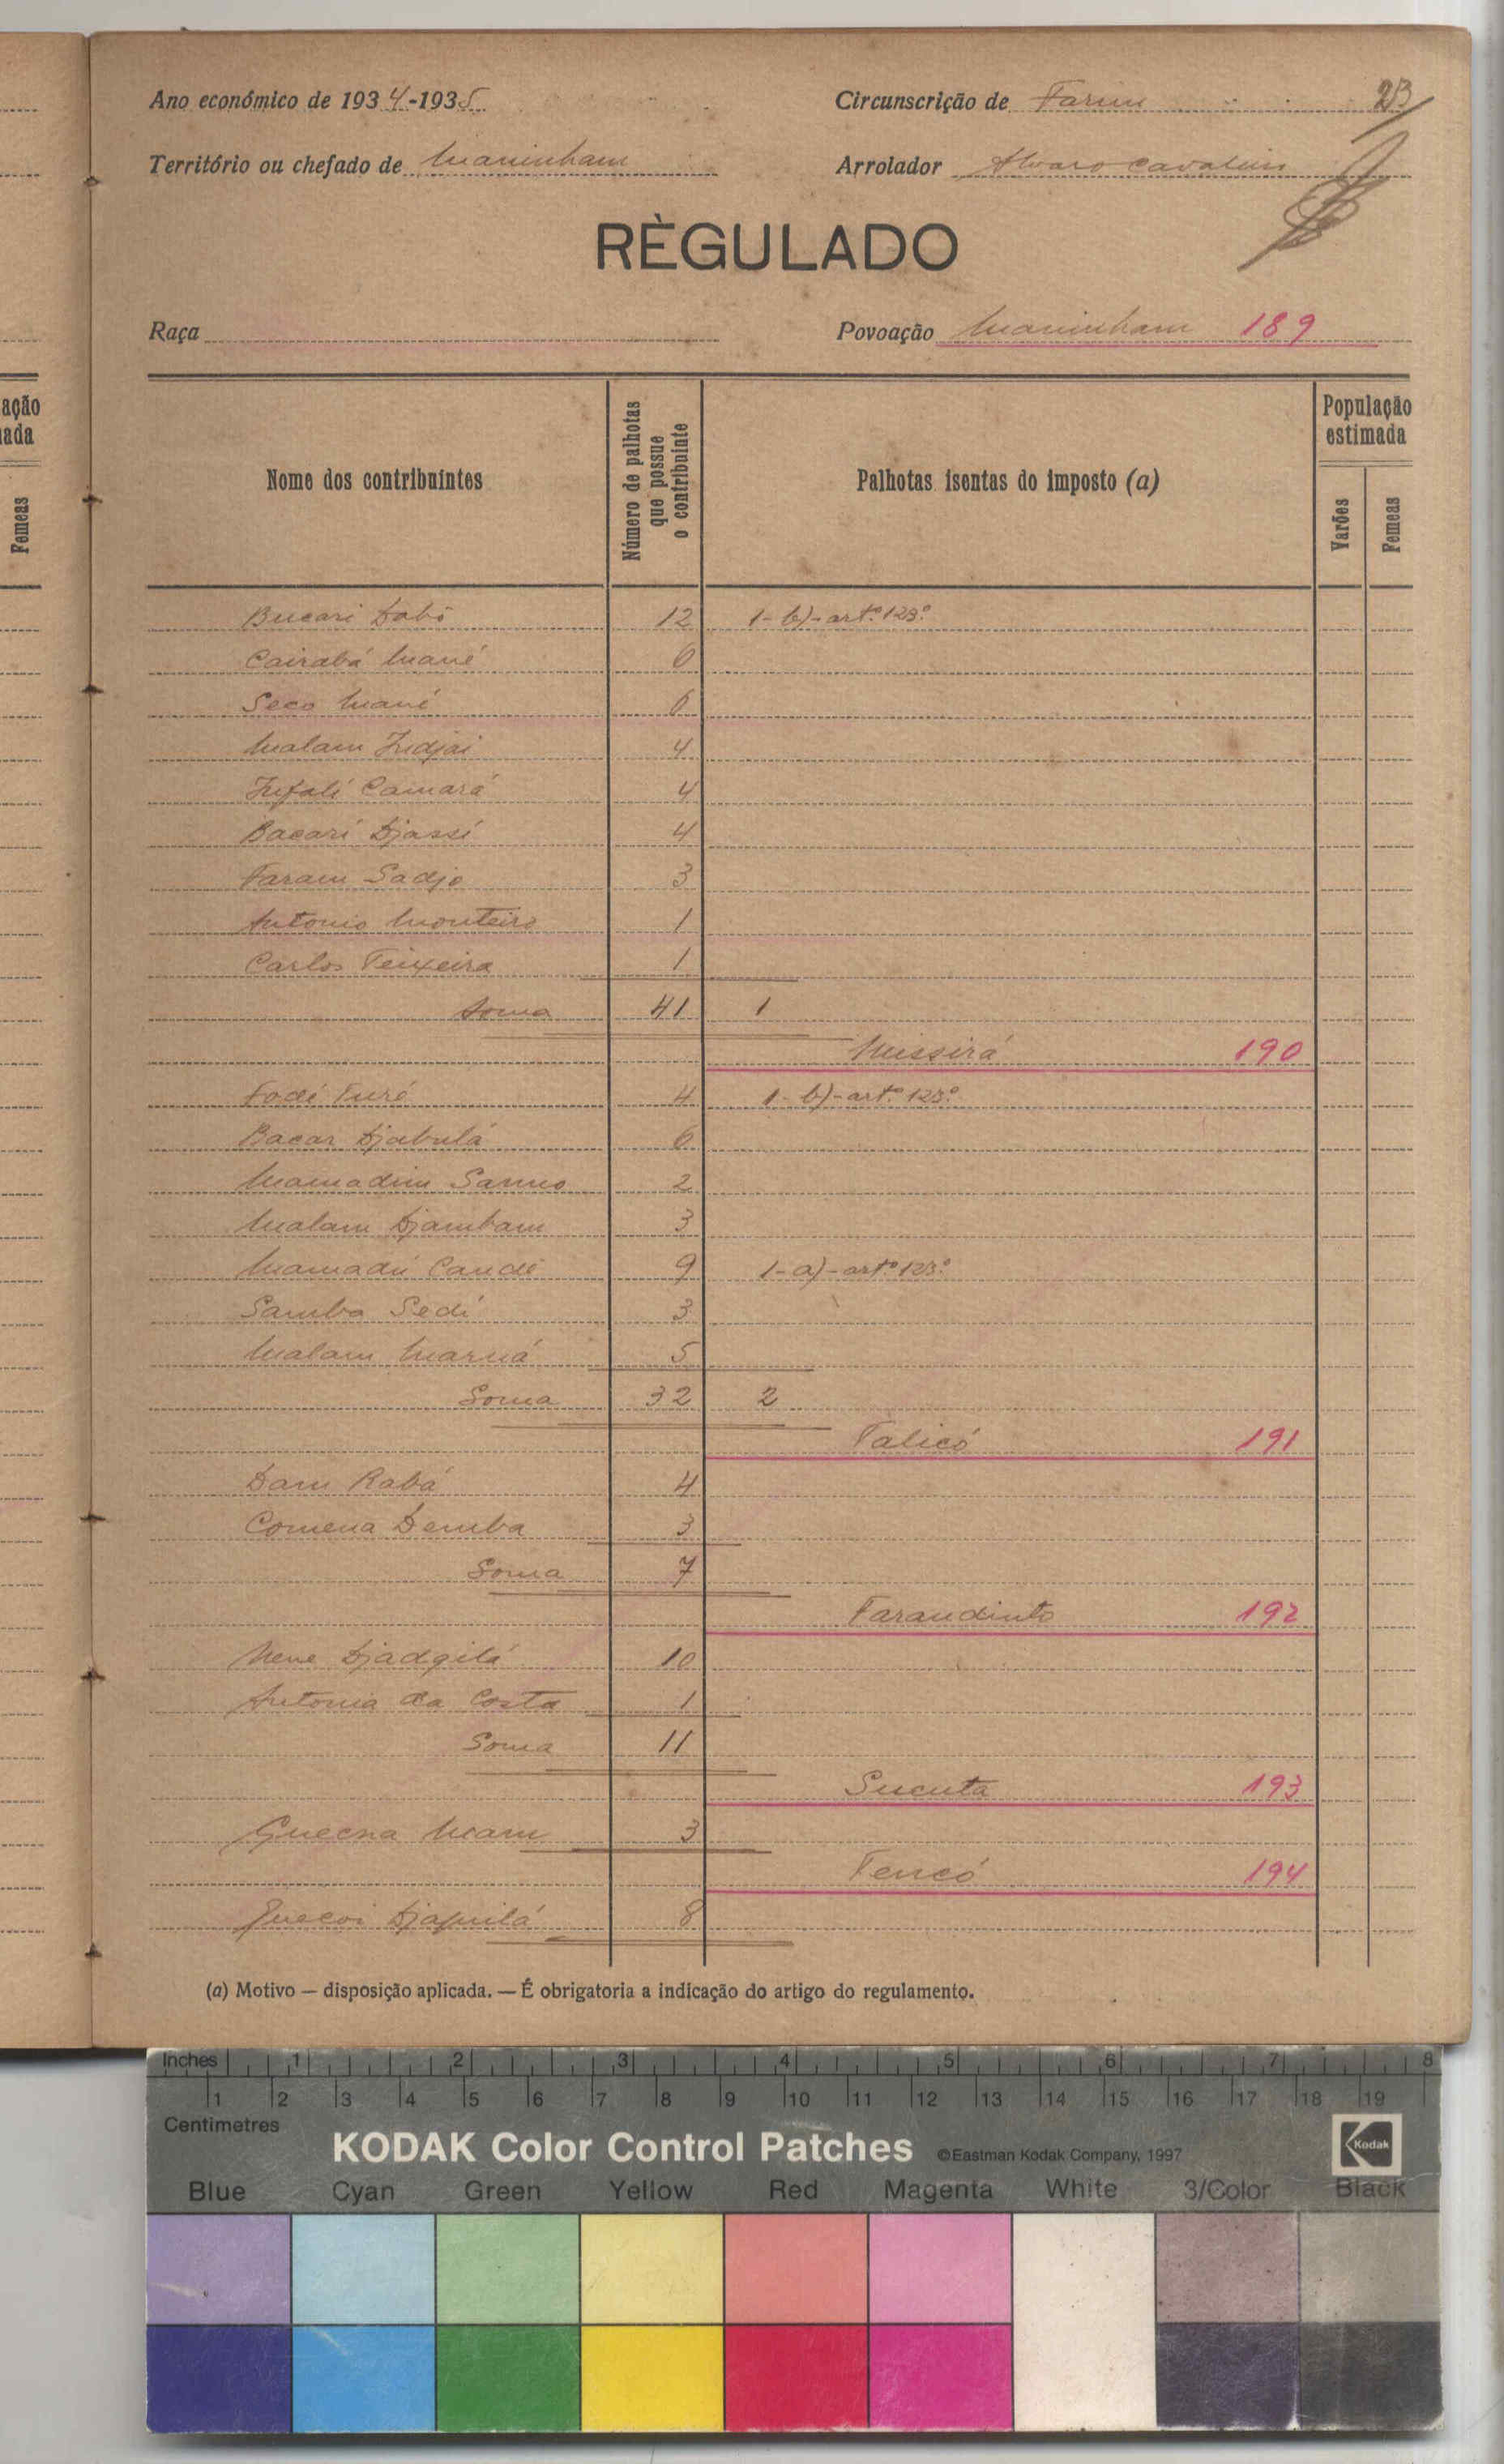 Ano económico de 1934-1935 Circunscrição de Farim 23
Território ou chefado de Maninham Arrolador Alvaro
RÈGULADO
Raça Povoação Maninham 189
ação
ada
Femeas
Nome dos contribuintes
Número de palhotas que possue o contribuinte
Palhotas isentas do imposto (a)
População estimada
Varões
Femeas
Bucari Dabó 12 1-b)-artº 123º
Cairabá Mané 6
Seco Mané 6
Malam Indjai 4
Infali Camará 4
Bacari Djassi 4
Faram Sadjo 3
Antonio Monteiro 1
Carlos Teixeira 1
Soma 41 1
Missirá 190
Fodé Turé 4 1-b)-artº 123º
Bacar Djabulá 6
Mamadim Sanno 2
Malam Djambam 3
Mamadú Candé 9 1-a)-artº 123º
Samba Sedi 3
Malam Marná 5
Soma 32 2
Talicó 191
Dam Rabá 4
Comena Demba 3
Soma 7
Farandinto 192
Nene Djadgilá 10
Antonia da Costa 1
Soma 11
Sucuta 193
Quecna Mam 3
Tencó 194
Quecoi 8
(a) Motivo — disposição aplicada. — É obrigatoria a indicação do artigo do regulamento.
Inches 1 2 3 4 5 6 7 8
1 2 3 4 5 6 7 8 9 10 11 12 13 14 15 16 17 18 19
Centimetres
KODAK Color Control Patches ©Eastman Kodak Company, 1997 Kodak
Blue Cyan Green Yellow Red Magenta White 3/Color Black